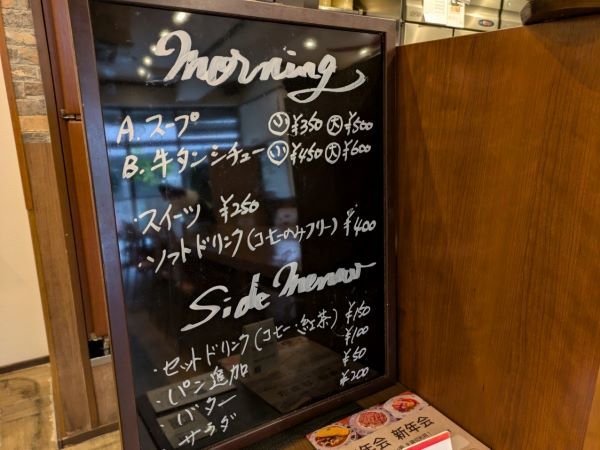 Morning
A. スープ ㊙小 ¥350 大 ¥500
B. 牛タンシチュー 小 ¥450 大 ¥600
・スイーツ ¥250
・ソフトドリンク(コヒーのみフリー) ¥400
Side Menew
・セットドリンク(コヒー・紅茶) ¥150
・パン追加 ¥100
・バター ¥50
サラダ ¥200
年会 新年会